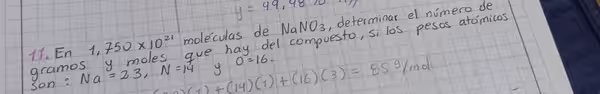 y = 99,48
11. En 1,750 x10²¹ moléculas de NaNO₃, determinar el número de
gramos y moles que hay del compuesto, si los pesos atómicos
son: Na = 23, N=14 y O=16.
(1) + (14)(1) + (16)(3) = 85 g/mol